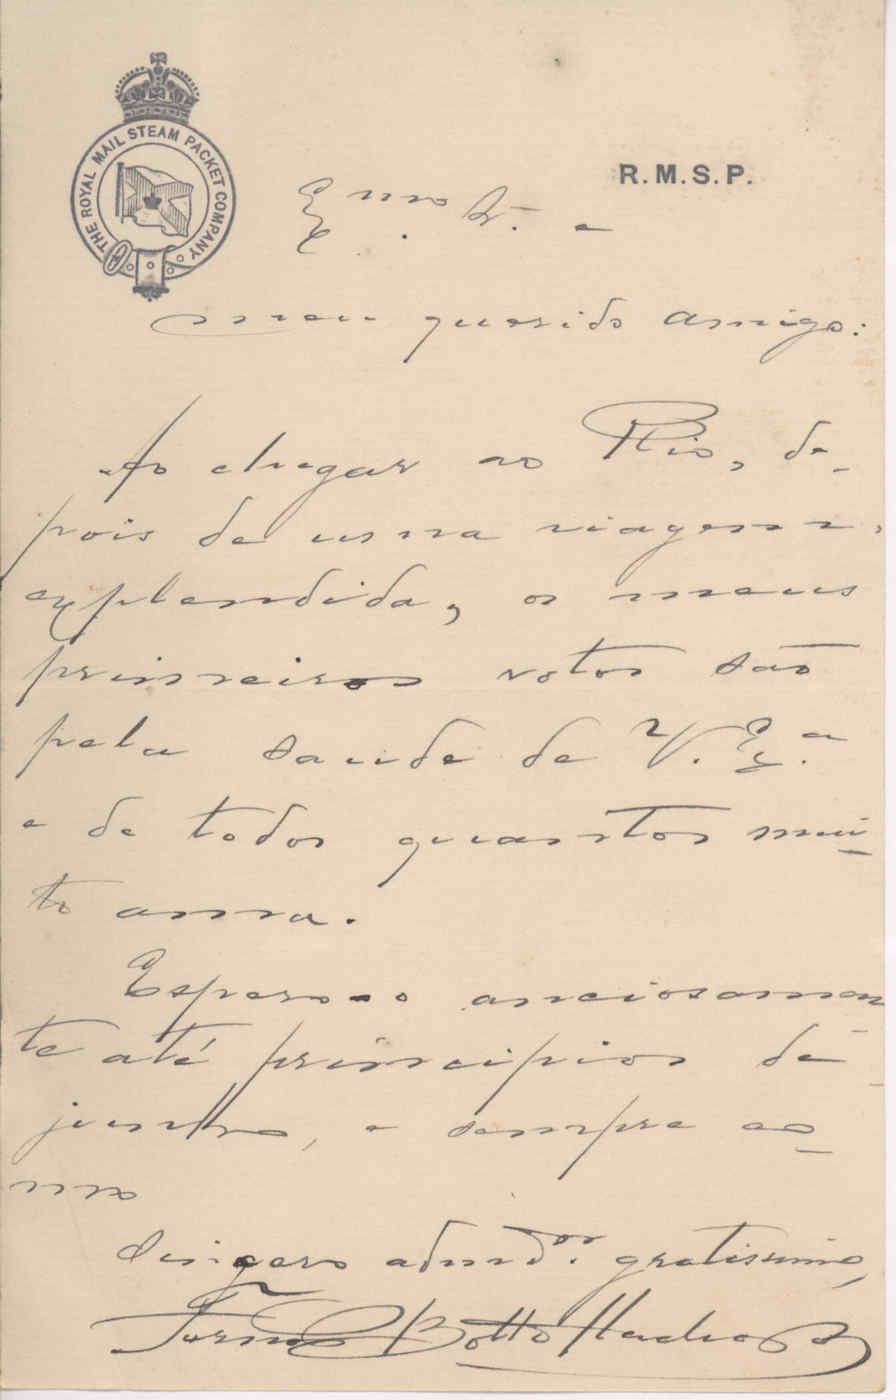 THE ROYAL MAIL STEAM PACKET COMPANY
R.M.S.P.
Exmo Sr.
Meu querido amigo:
Ao chegar ao Rio, de-
pois de uma viagem
explendida, os meus
primeiros votos são
pela saude de V. Ex.a
e de todos quantos mui-
to ama.
Espero-o anciosamen
te até principios de
junho, e sempre co-
mo
Sincero admdor. gratissimo,
Fern Botto Machado